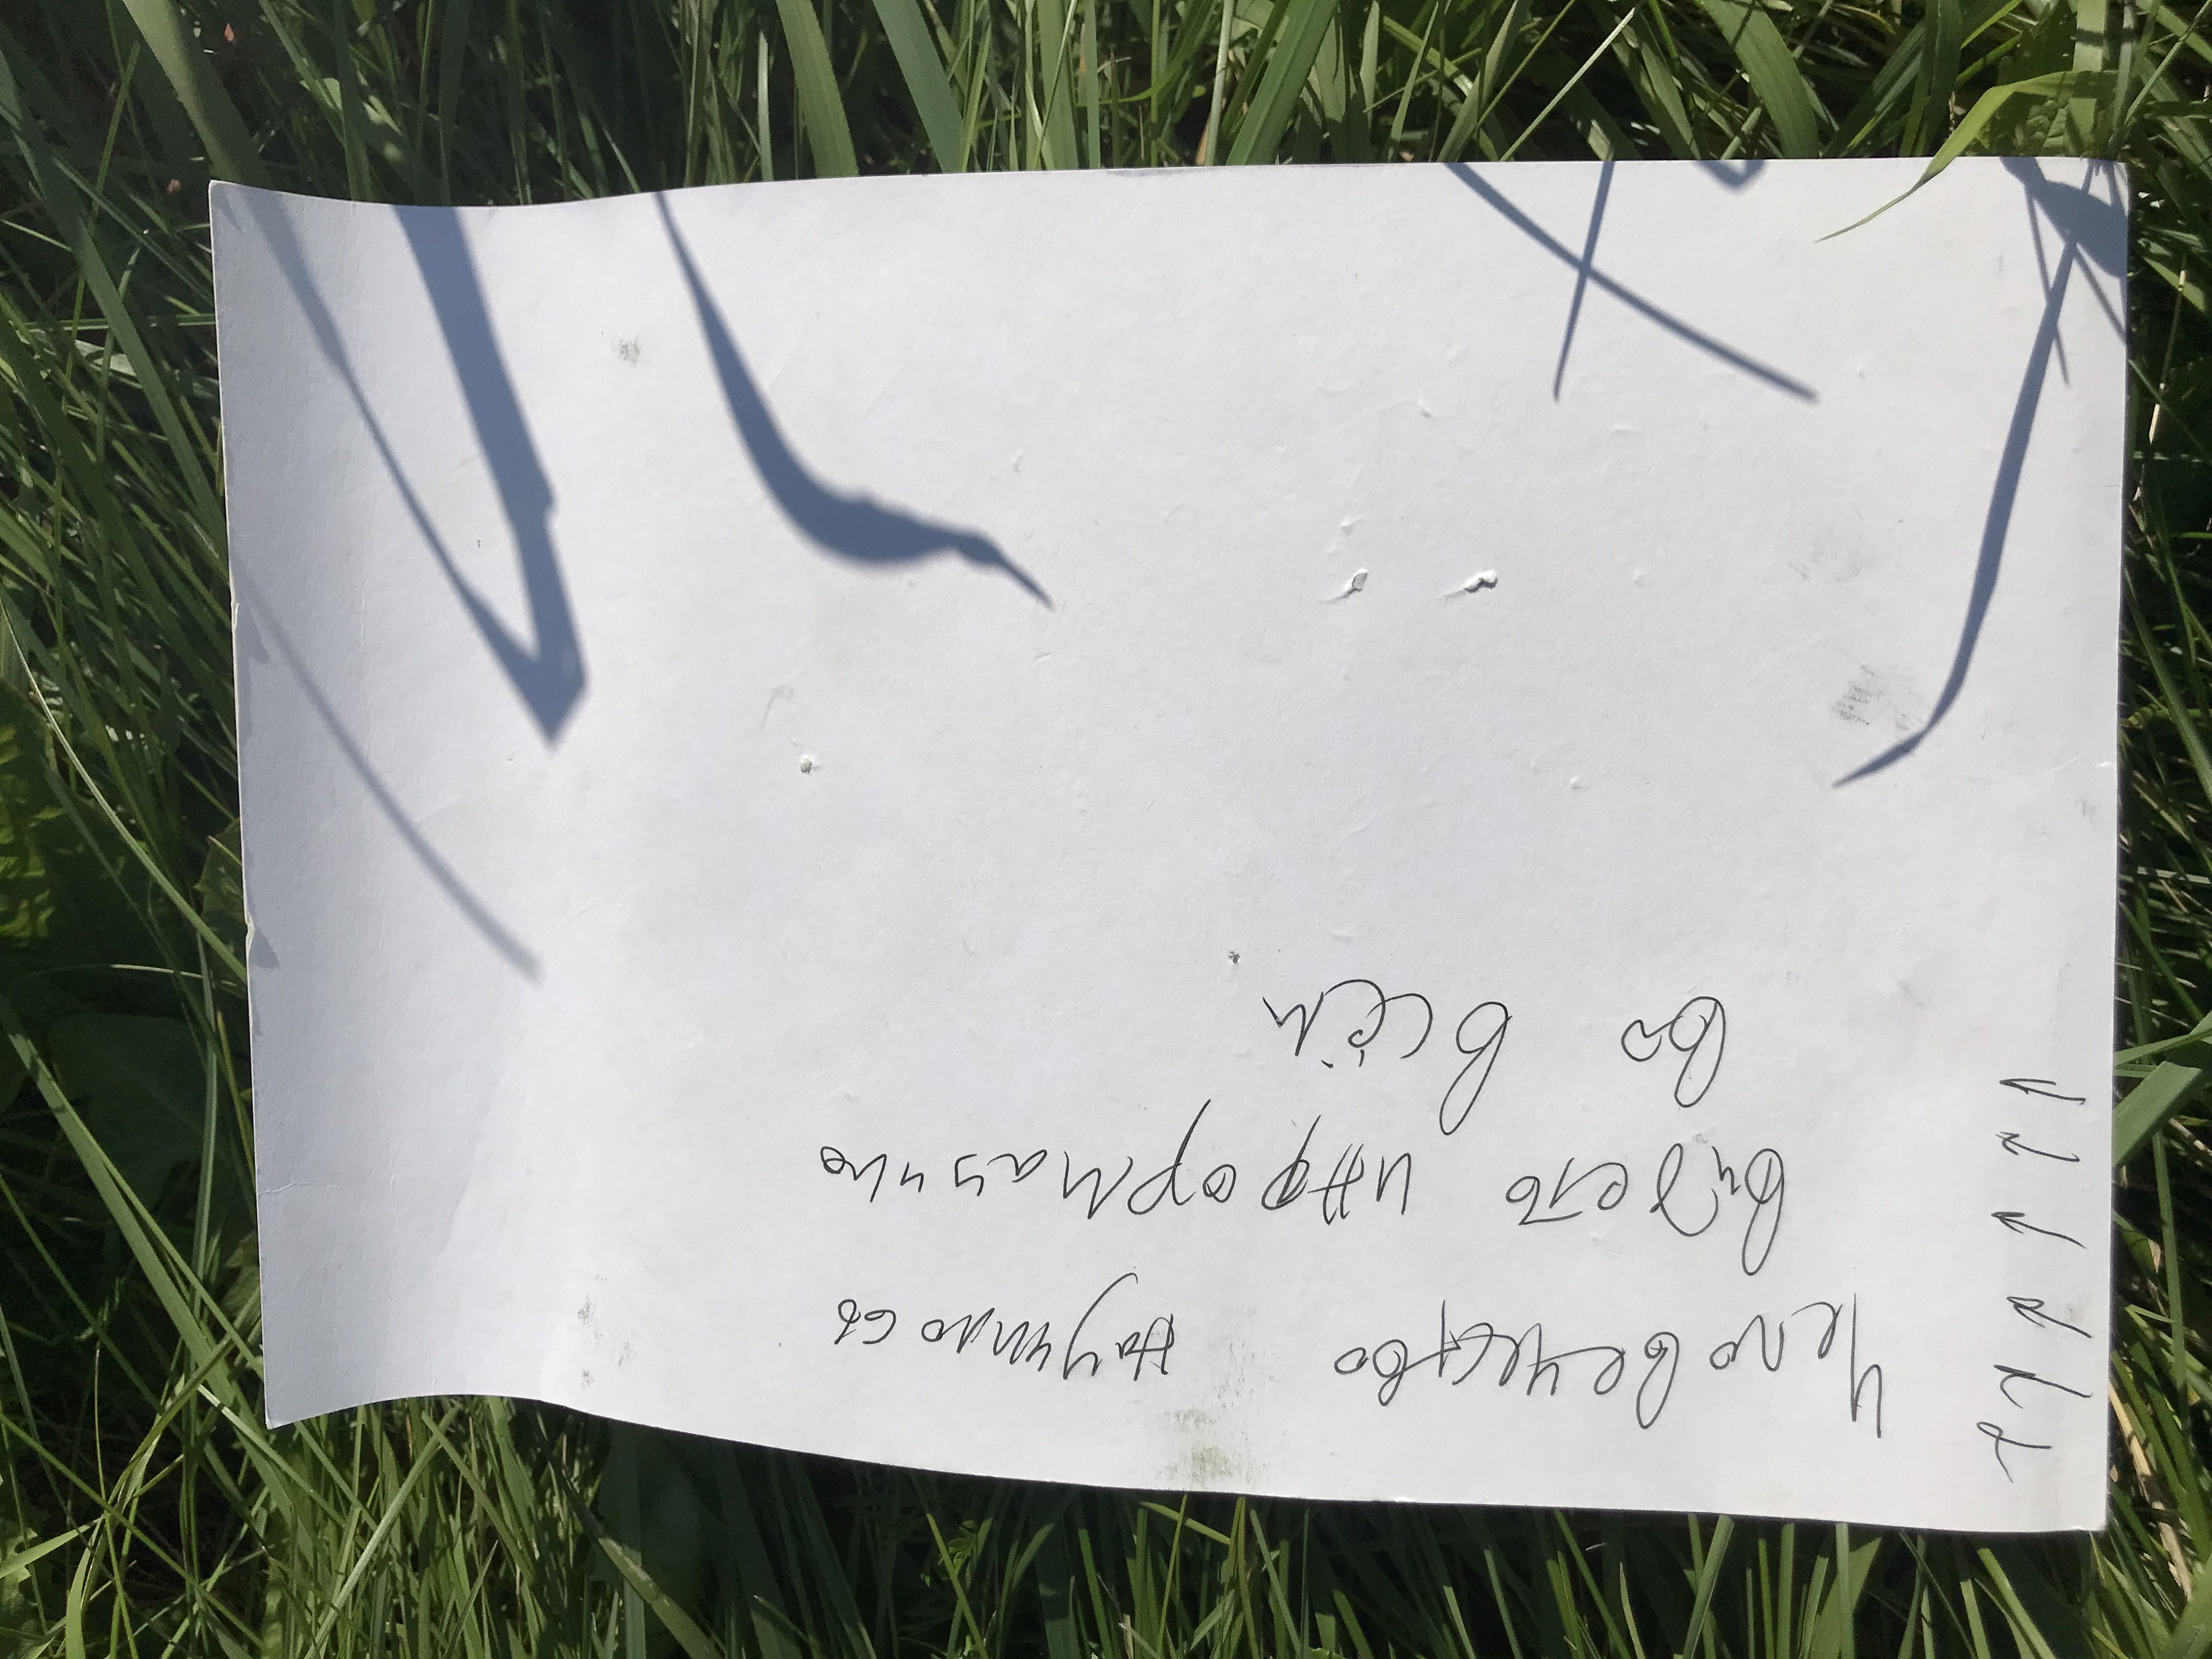 Человечество научилось
видеть информацию
во всём.